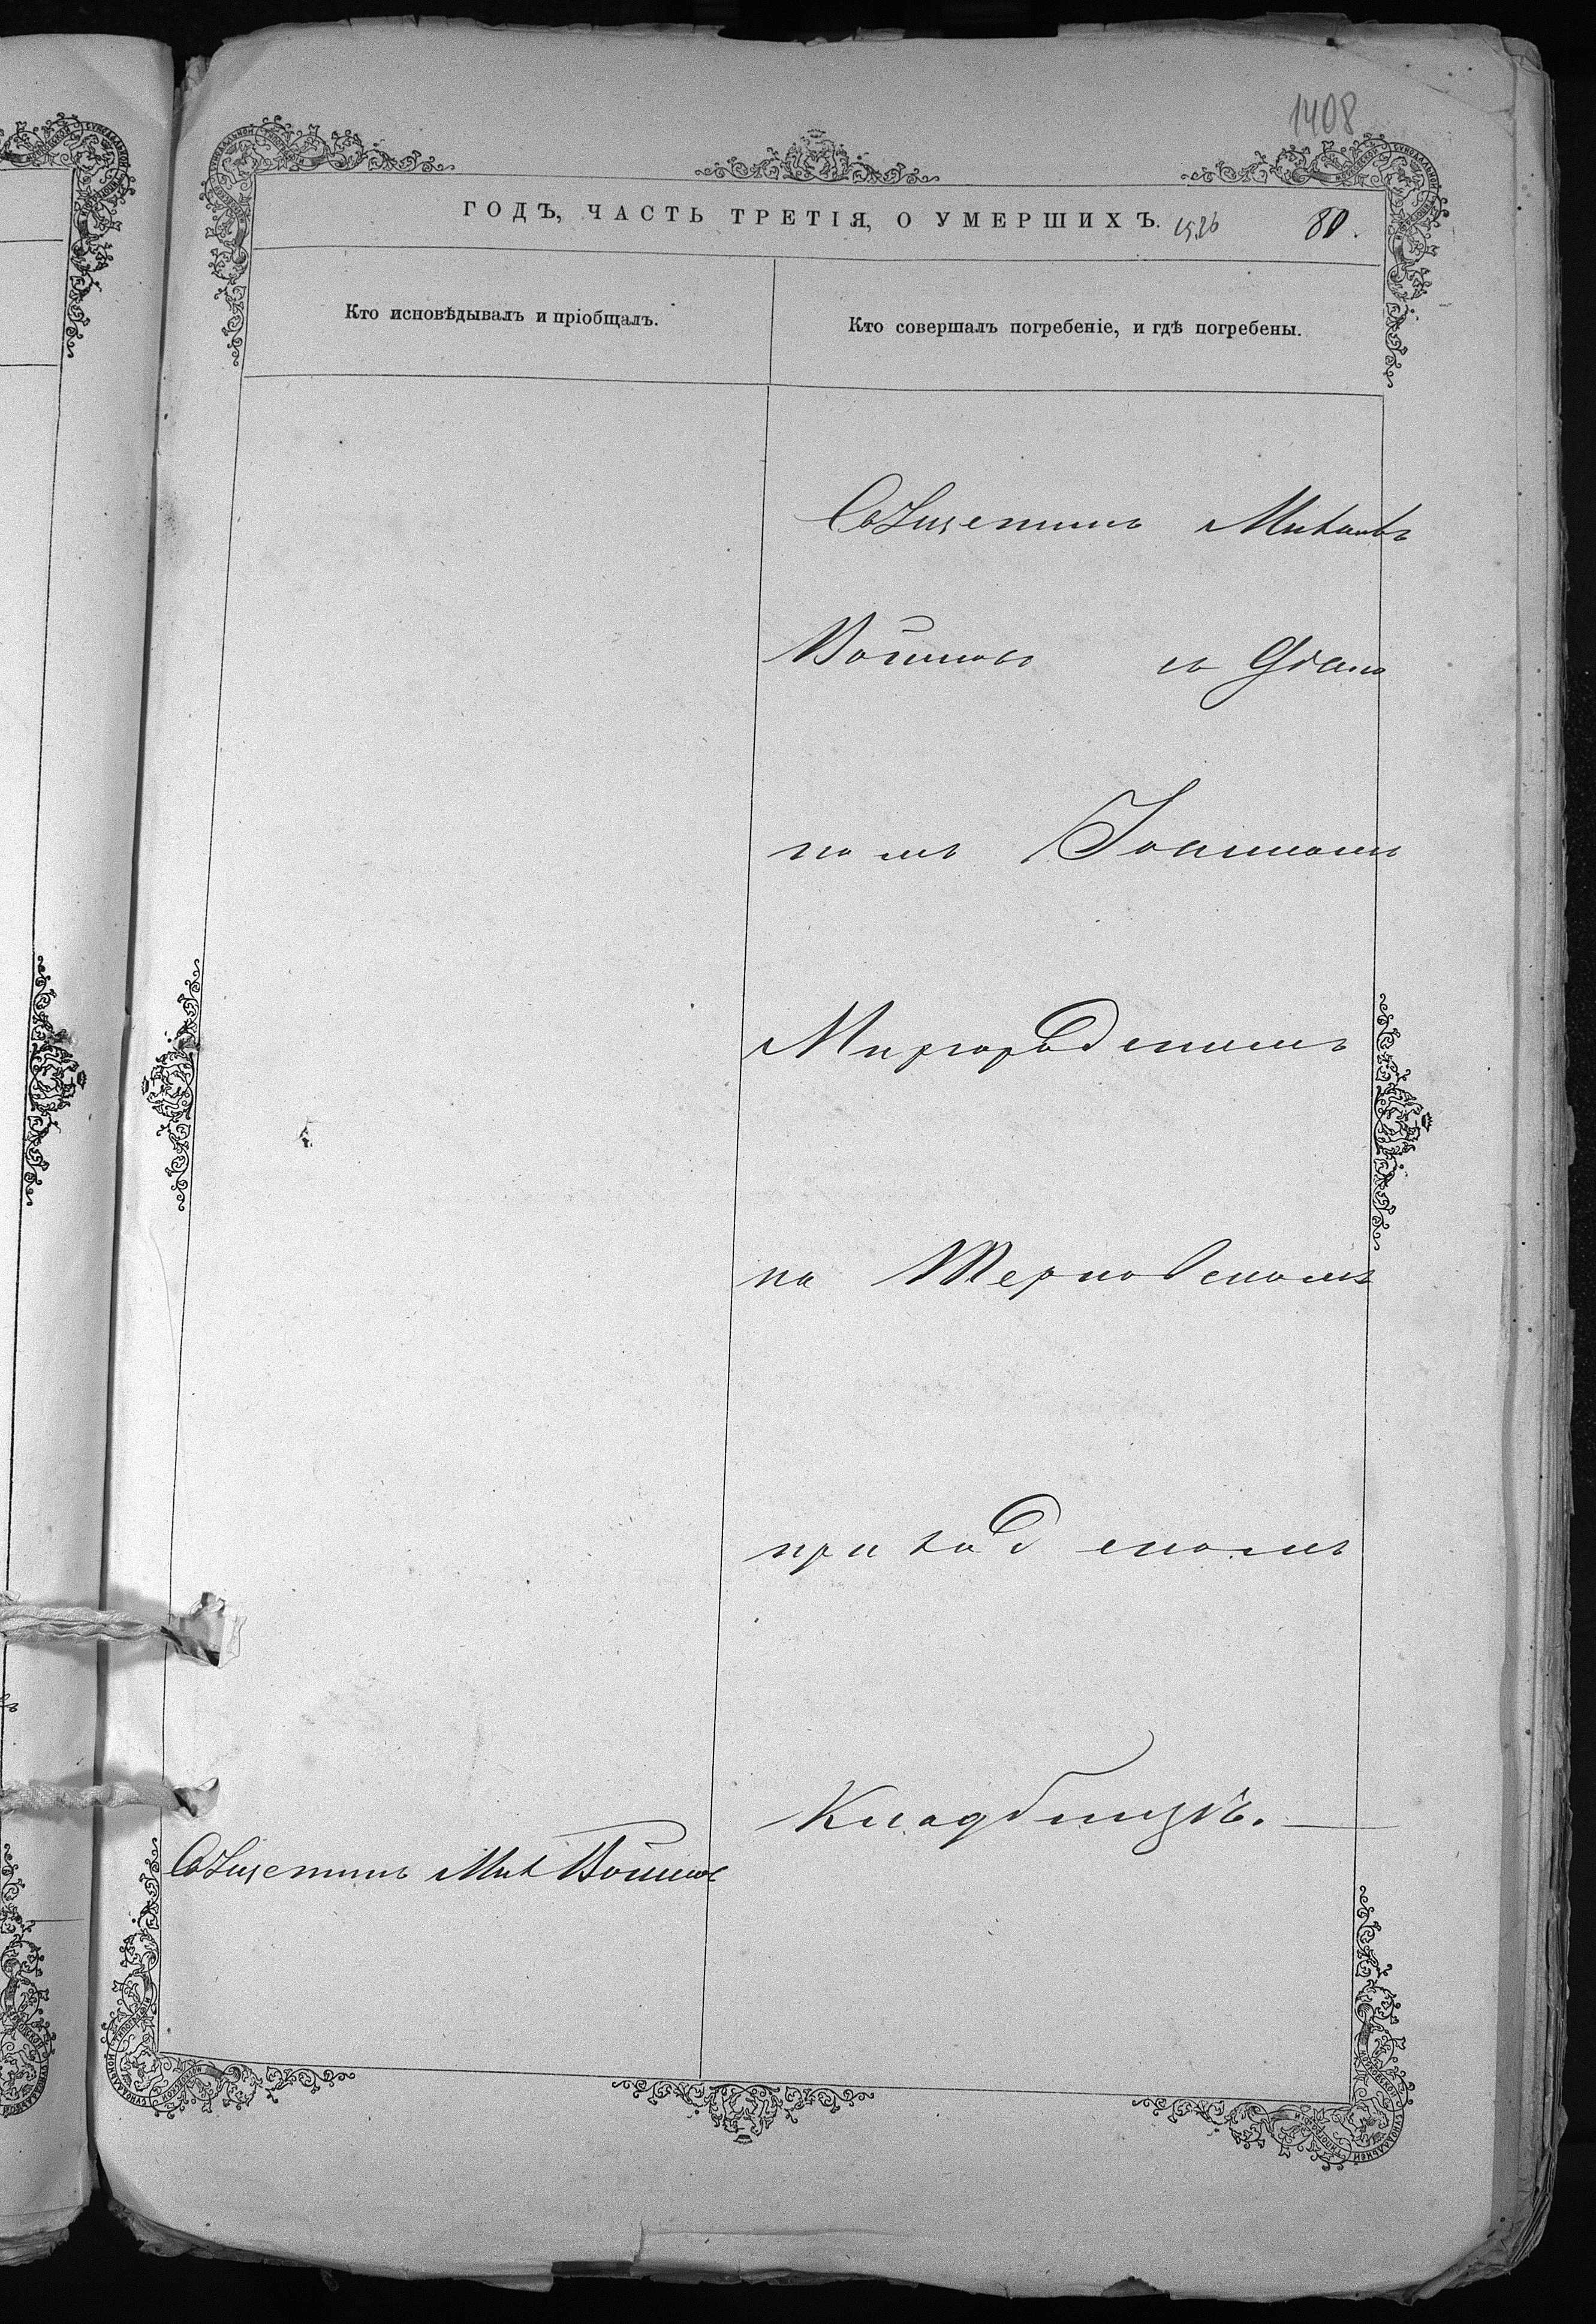 1408
ГОДЪ, ЧАСТЬ ТРЕТІЯ, О УМЕРШИХЪ. 80.
Кто исповѣдывалъ и пріобщалъ.
Кто совершалъ погребеніе, и гдѣ погребены.
Священникъ Михаилъ
съ Діако
номъ Іоанномъ
Миргородскимъ
на Терновскомъ
приходскомъ
Кладбищѣ.
Священникъ Мих